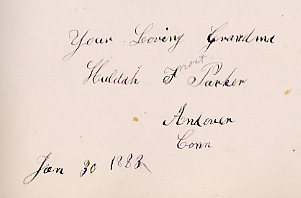 Your Loving Grandma
Huldah F Parker
Andover
Conn
Jan 30 1883